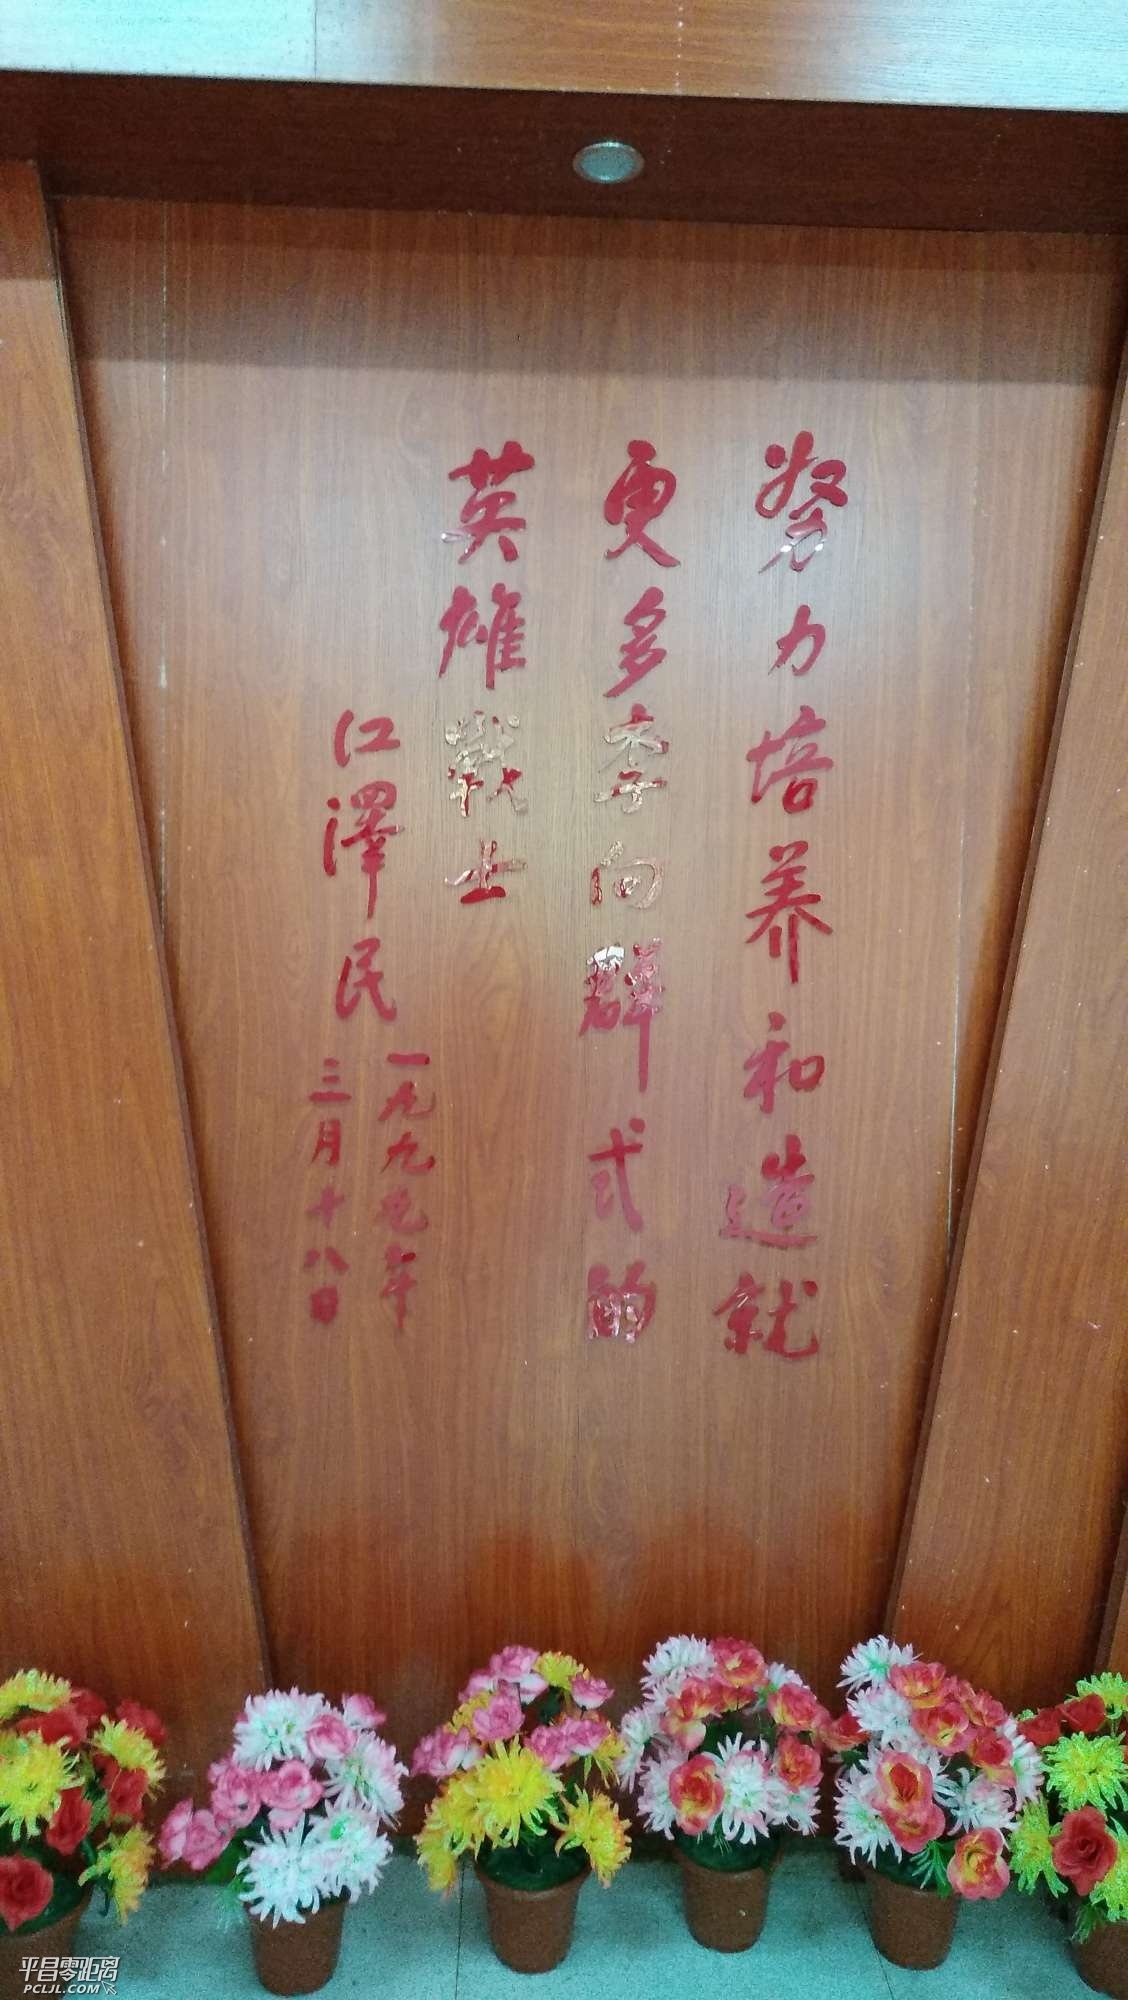 努力培养和造就
更多李向群式的
英雄戰士
江澤民
一九九九年
三月十八日
平昌零距离
PCLJL.COM